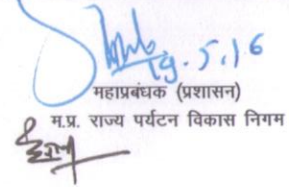 19.5.16
महाप्रबंधक (प्रशासन)
म.प्र. राज्य पर्यटन विकास निगम